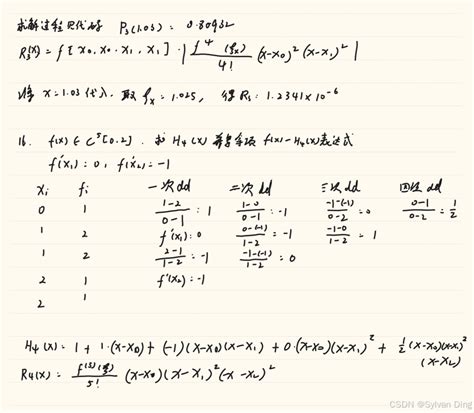 求解过程见代码 P₃(1.03) = 0.80932
R₃(x) = f[x₀, x₀, x₁, x₁] · | f⁴(ξx)/4! (x-x₀)²(x-x₁)² |
将 x = 1.03 代入, 取 ξx = 1.025, 得 R₃ = 1.2341×10⁻⁶
16. f(x) ∈ C⁵[0.2]. 求 H₄(x) 并写余项 f(x)-H₄(x)表达式
f'(x₁) = 0, f'(x₂) = -1
xᵢ fᵢ 一次dd 二次dd 三次dd 四次dd
0 1 (1-2)/(0-1) = 1 (1-0)/(0-1) = -1 (-1-(-1))/(0-2) = 0 (0-1)/(0-2) = 1/2
1 2 f'(x₁) = 0 (0-(-1))/(1-2) = -1 (-1-0)/(1-2) = 1
1 2 (2-1)/(1-2) = -1 (-1-(-1))/(1-2) = 0
2 1 f'(x₂) = -1
2 1
H₄(x) = 1 + 1·(x-x₀) + (-1)(x-x₀)(x-x₁) + 0·(x-x₀)(x-x₁)² + 1/2 (x-x₀)(x-x₁)²(x-x₂)
R₄(x) = f⁽⁵⁾(ξ)/5! (x-x₀)(x-x₁)²(x-x₂)²
CSDN @Sylvan Ding